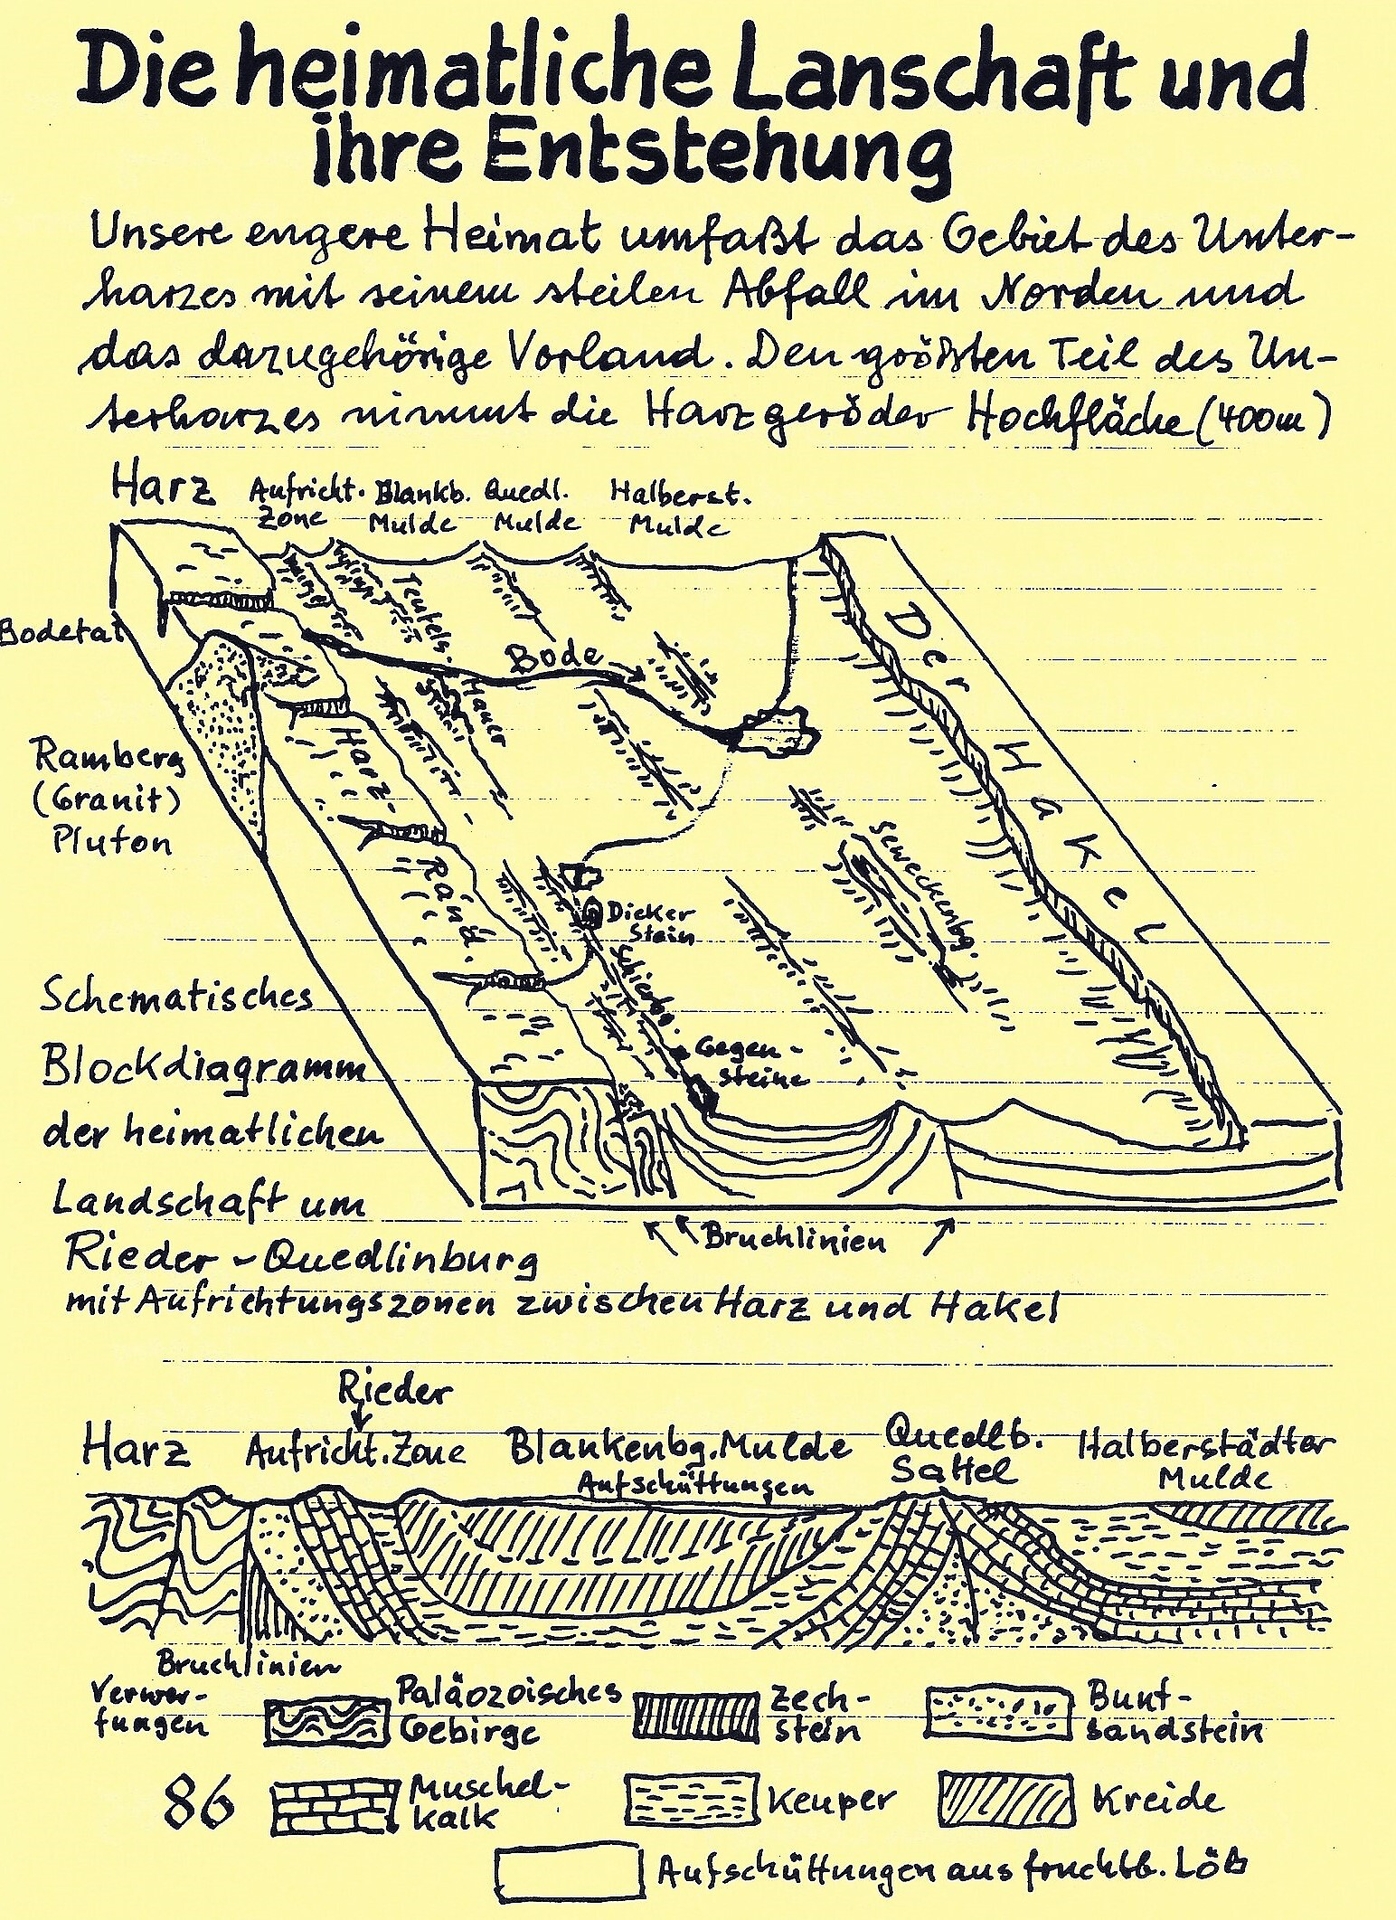 Die heimatliche Lanschaft und
ihre Entstehung
Unsere engere Heimat umfaßt das Gebiet des Unter-
harzes mit seinem steilen Abfall im Norden und
das dazugehörige Vorland. Den größten Teil des Un-
terharzes nimmt die Harzgeröder Hochfläche (400m)
Harz
Aufricht.
Zone
Blankb.
Mulde
Quedl.
Mulde
Halberst.
Mulde
Bodetal
Teufels-
Mauer
Bode
Der Hakel
Ramberg
(Granit)
Pluton
Harz-
Rand
Dicker
Stein
Schierbg.
Seweckenbg.
Gegen-
steine
Schematisches
Blockdiagramm
der heimatlichen
Landschaft um
Rieder - Quedlinburg
mit Aufrichtungszonen zwischen Harz und Hakel
Bruchlinien
Rieder
Harz
Aufricht. Zone
Blankenbg. Mulde
Aufschüttungen
Quedlb.
Sattel
Halberstädter
Mulde
Bruchlinien
Verwer-
fungen
Paläozoisches
Gebirge
Zech-
stein
Bunt-
sandstein
86
Muschel-
kalk
Keuper
Kreide
Aufschüttungen aus fruchtb. Löß